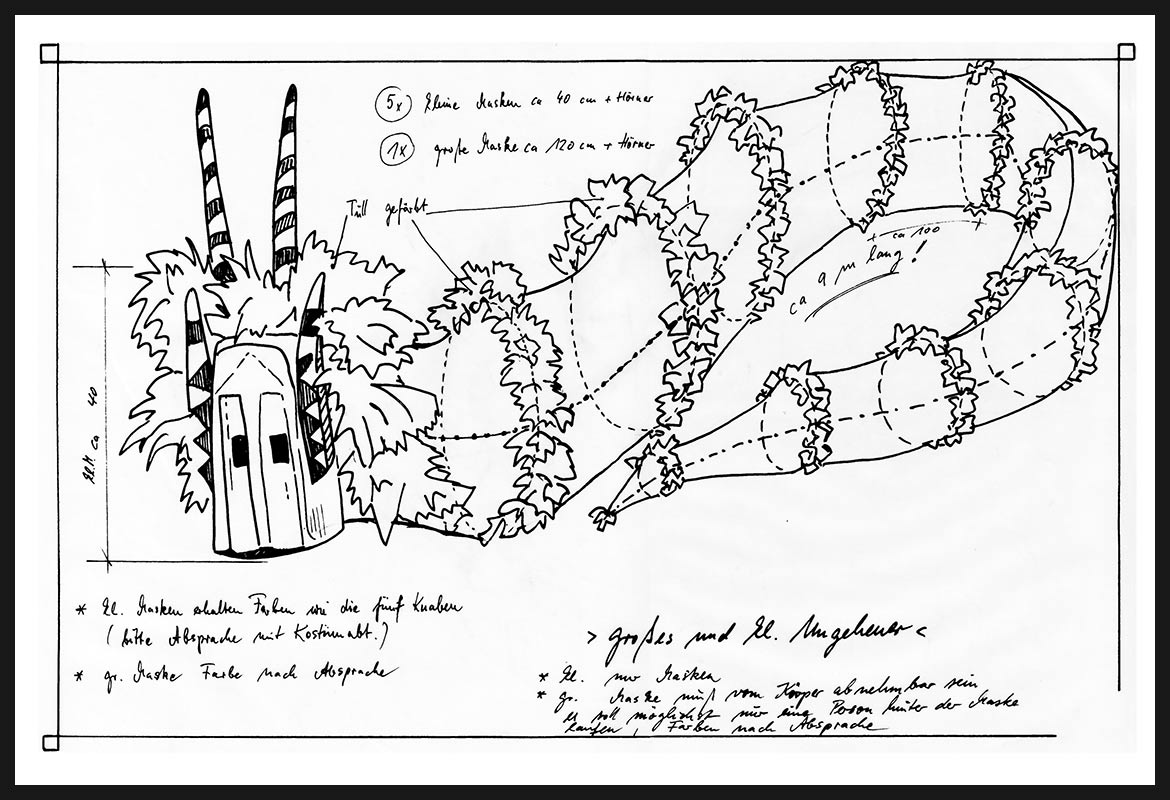 5x kleine Masken ca 40 cm + Hörner
1x große Maske ca 120 cm + Hörner
Tüll gefärbt
+ ca 100 +
ca 9 m lang!
kl.M ca 40
* kl. Masken erhalten Farben wie die fünf Knaben
(bitte Absprache mit Kostümabt.)
* gr. Maske Farbe nach Absprache
> großes und kl. Ungeheuer <
* kl. nur Masken
* gr. Maske muß vom Körper abnehmbar sein
es soll möglichst nur eine Person hinter der Maske
laufen, Farben nach Absprache